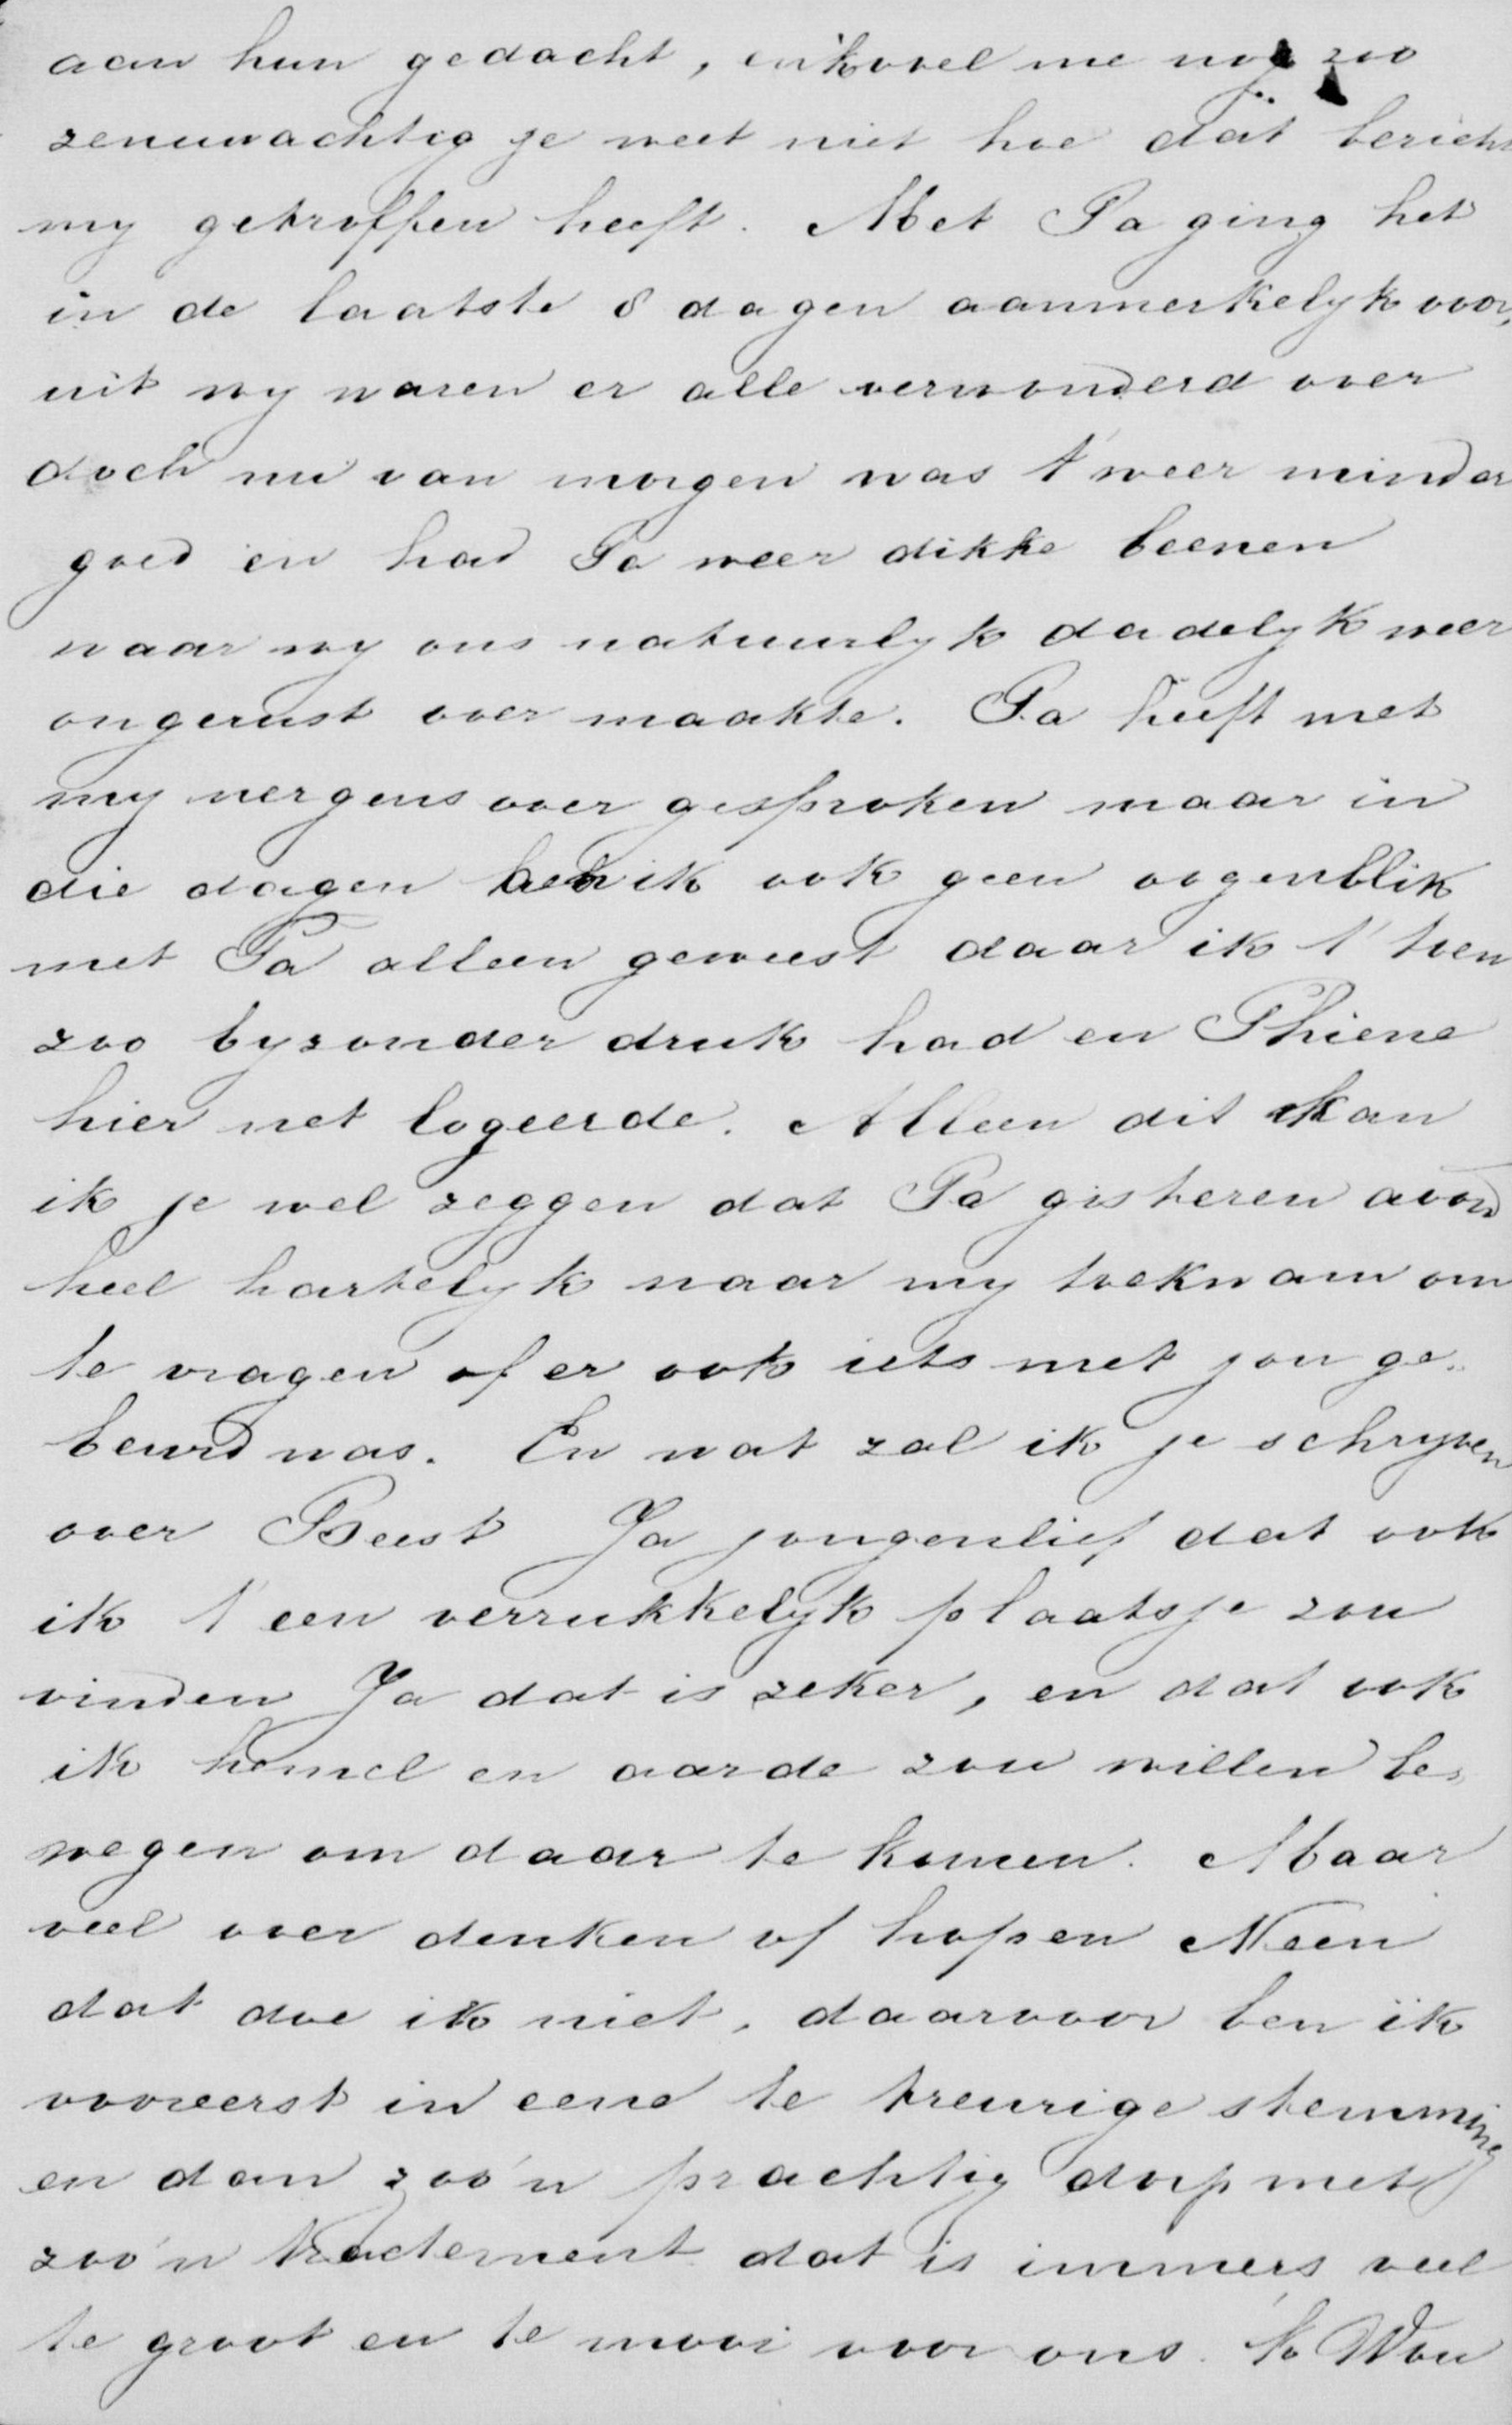 aan hun gedacht, en ik voel me nog zoo
zenuwachtig je weet niet hoe dat bericht
my getroffen heeft. Met Pa ging het
in de laatste 8 dagen aanmerkelyk voor,
uit wy waren er alle verwonderd over
doch nu van morgen was t' weer minder
goed en had Pa weer dikke beenen
waar wy ons natuurlyk dadelyk weer
ongerust over maakte. Pa heeft met
my nergens over gesproken maar in
die dagen ben ik ook geen oogenblik
met Pa alleen geweest daar ik t' toen
zoo byzonder druk had en Phiene
hier net logeerde. Alleen dit kan
ik je wel zeggen dat Pa gisteren avond
heel hartelyk naar my toekwam om
te vragen of er ook iets met jou ge-
beurd was. En wat zal ik je schryven
over Beest Ja jongenlief dat ook
ik t' een verrukkelyk plaatsje zou
vinden Ja dat is zeker, en dat ook
ik hemel en aarde zou willen be-
wegen om daar te komen. Maar
veel over denken of hopen Neen
dat doe ik niet, daarvoor ben ik
vooreerst in eene te treurige stemming
en dan zoo'n prachtig dorp met
zoo'n tractement dat is immers veel
te groot en te mooi voor ons. 'k Wou